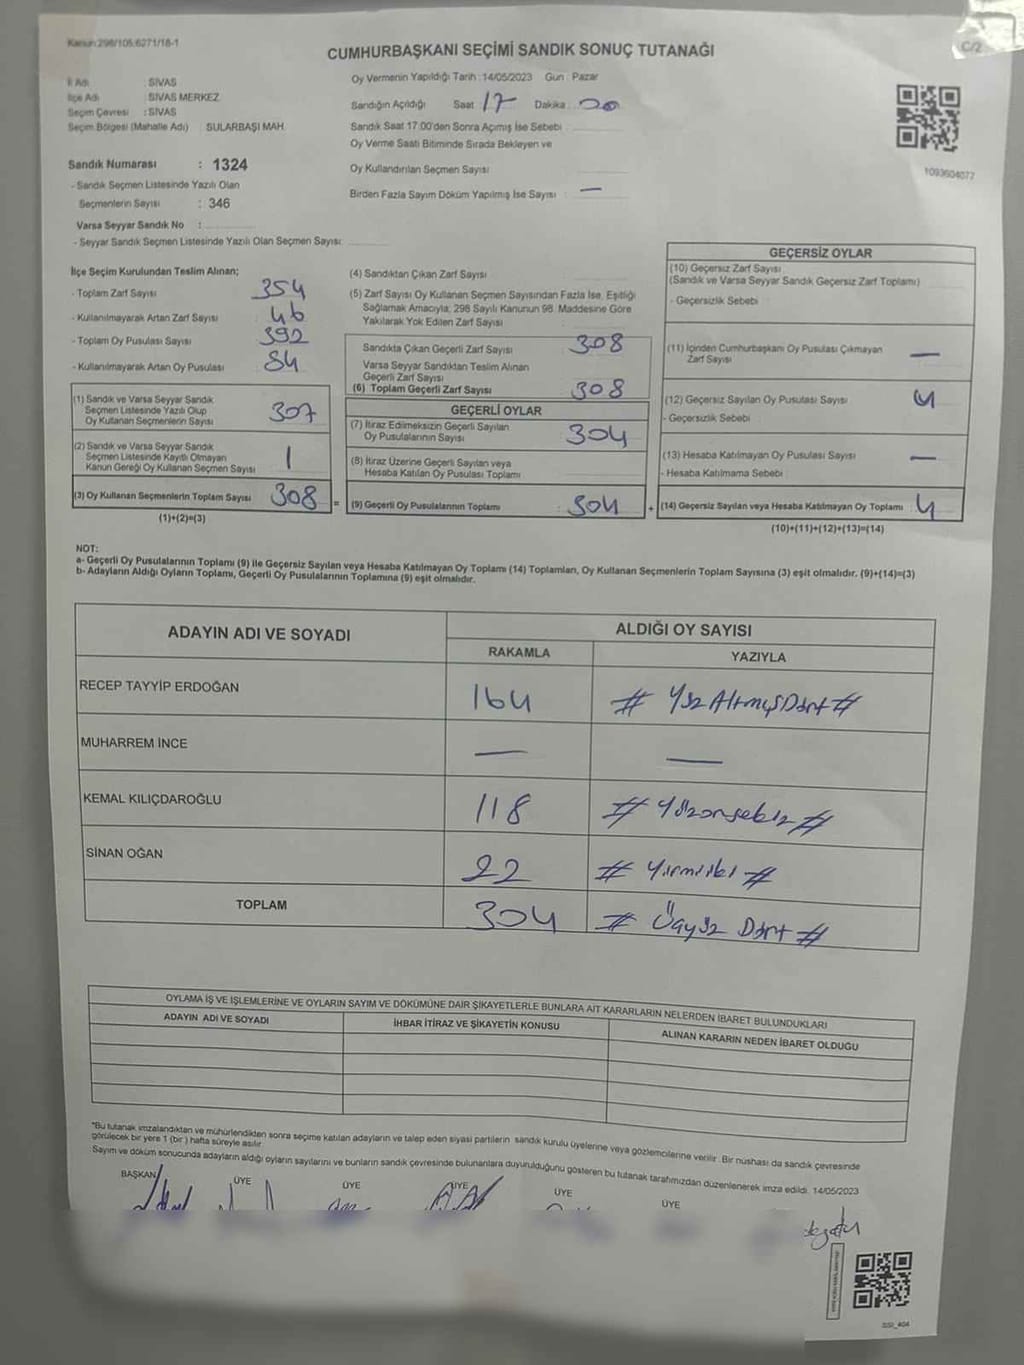 Kanun:298/105:6271/18-1
C/2
CUMHURBAŞKANI SEÇİMİ SANDIK SONUÇ TUTANAĞI
İl Adı : SİVAS
İlçe Adı : SİVAS MERKEZ
Seçim Çevresi : SİVAS
Seçim Bölgesi (Mahalle Adı) SULARBAŞI MAH.
Sandık Numarası : 1324
- Sandık Seçmen Listesinde Yazılı Olan
Seçmenlerin Sayısı : 346
Varsa Seyyar Sandık No :
- Seyyar Sandık Seçmen Listesinde Yazılı Olan Seçmen Sayısı:
Oy Vermenin Yapıldığı Tarih : 14/05/2023 Gün : Pazar
Sandığın Açıldığı Saat 17 Dakika : 20
Sandık Saat 17.00'den Sonra Açılmış İse Sebebi
Oy Verme Saati Bitiminde Sırada Bekleyen ve
Oy Kullandırılan Seçmen Sayısı
Birden Fazla Sayım Döküm Yapılmış İse Sayısı : —
1093604077
İlçe Seçim Kurulundan Teslim Alınan;
- Toplam Zarf Sayısı 354
- Kullanılmayarak Artan Zarf Sayısı 46
- Toplam Oy Pusulası Sayısı 392
- Kullanılmayarak Artan Oy Pusulası 84
(1) Sandık ve Varsa Seyyar Sandık
Seçmen Listesinde Yazılı Olup
Oy Kullanan Seçmenlerin Sayısı 307
(2) Sandık ve Varsa Seyyar Sandık
Seçmen Listesinde Kayıtlı Olmayan
Kanun Gereği Oy Kullanan Seçmen Sayısı 1
(3) Oy Kullanan Seçmenlerin Toplam Sayısı 308 =
(1)+(2)=(3)
(4) Sandıktan Çıkan Zarf Sayısı
(5) Zarf Sayısı Oy Kullanan Seçmen Sayısından Fazla İse, Eşitliği
Sağlamak Amacıyla; 298 Sayılı Kanunun 98. Maddesine Göre
Yakılarak Yok Edilen Zarf Sayısı
Sandıkta Çıkan Geçerli Zarf Sayısı 308
Varsa Seyyar Sandıktan Teslim Alınan
Geçerli Zarf Sayısı
(6) Toplam Geçerli Zarf Sayısı 308
GEÇERLİ OYLAR
(7) İtiraz Edilmeksizin Geçerli Sayılan
Oy Pusulalarının Sayısı 304
(8) İtiraz Üzerine Geçerli Sayılan veya
Hesaba Katılan Oy Pusulası Toplamı
(9) Geçerli Oy Pusulalarının Toplamı : 304 +
GEÇERSİZ OYLAR
(10) Geçersiz Zarf Sayısı
(Sandık ve Varsa Seyyar Sandık Geçersiz Zarf Toplamı)
- Geçersizlik Sebebi
(11) İçinden Cumhurbaşkanı Oy Pusulası Çıkmayan
Zarf Sayısı —
(12) Geçersiz Sayılan Oy Pusulası Sayısı 4
- Geçersizlik Sebebi
(13) Hesaba Katılmayan Oy Pusulası Sayısı —
- Hesaba Katılmama Sebebi
(14) Geçersiz Sayılan veya Hesaba Katılmayan Oy Toplamı : 4
(10)+(11)+(12)+(13)=(14)
NOT:
a- Geçerli Oy Pusulalarının Toplamı (9) ile Geçersiz Sayılan veya Hesaba Katılmayan Oy Toplamı (14) Toplamları, Oy Kullanan Seçmenlerin Toplam Sayısına (3) eşit olmalıdır. (9)+(14)=(3)
b- Adayların Aldığı Oyların Toplamı, Geçerli Oy Pusulalarının Toplamına (9) eşit olmalıdır.
ADAYIN ADI VE SOYADI
ALDIĞI OY SAYISI
RAKAMLA YAZIYLA
RECEP TAYYİP ERDOĞAN 164 # YüzAltmışDört #
MUHARREM İNCE — —
KEMAL KILIÇDAROĞLU 118 # Yüzonsekiz #
SİNAN OĞAN 22 # Yirmiiki #
TOPLAM 304 # Üçyüz Dört #
OYLAMA İŞ VE İŞLEMLERİNE VE OYLARIN SAYIM VE DÖKÜMÜNE DAİR ŞİKAYETLERLE BUNLARA AİT KARARLARIN NELERDEN İBARET BULUNDUKLARI
ADAYIN ADI VE SOYADI İHBAR İTİRAZ VE ŞİKAYETİN KONUSU ALINAN KARARIN NEDEN İBARET OLDUĞU
*Bu tutanak imzalandıktan ve mühürlendikten sonra seçime katılan adayların ve talep eden siyasi partilerin sandık kurulu üyelerine veya gözlemcilerine verilir. Bir nüshası da sandık çevresinde
görülecek bir yere 1 (bir) hafta süreyle asılır.
Sayım ve döküm sonucunda adayların aldığı oyların sayılarını ve bunların sandık çevresinde bulunanlara duyurulduğunu gösteren bu tutanak tarafımızdan düzenlenerek imza edildi. 14/05/2023
BAŞKAN ÜYE ÜYE ÜYE ÜYE ÜYE
SSI_404